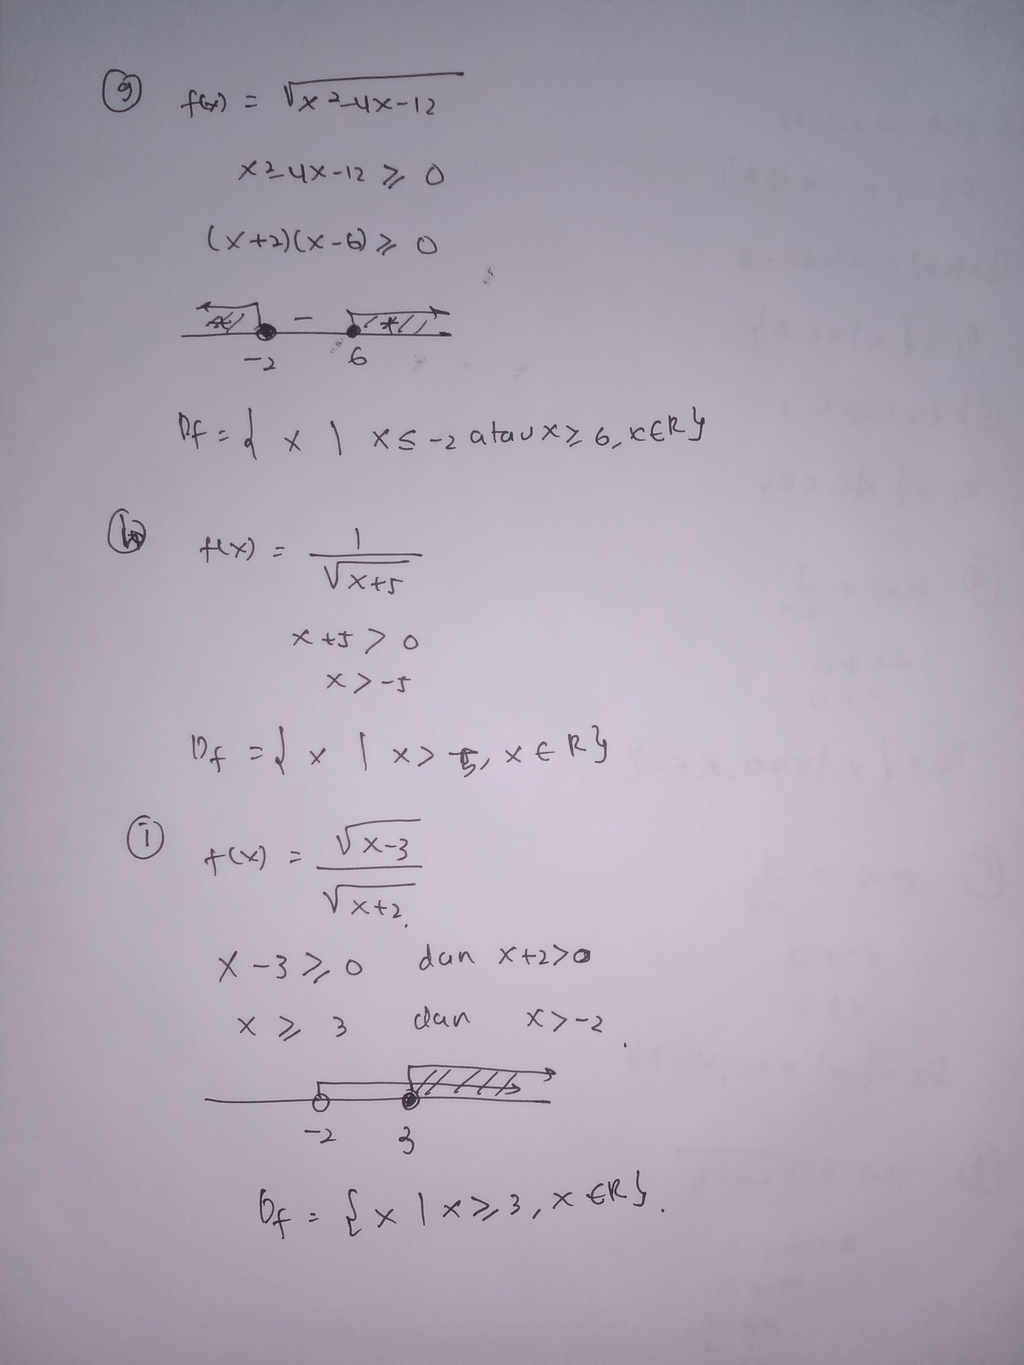 g f(x) = √x²-4x-12
x²-4x-12 ≥ 0
(x+2)(x-6) ≥ 0
+ - +
-2 6
Df = { x | x ≤ -2 atau x ≥ 6, x ∈ R}
h f(x) = 1/√x+5
x+5 > 0
x > -5
Df = { x | x > -5, x ∈ R}
i f(x) = √x-3/√x+2
x-3 ≥ 0 dan x+2>0
x ≥ 3 dan x>-2
-2 3
Df = {x | x ≥ 3, x ∈R}.